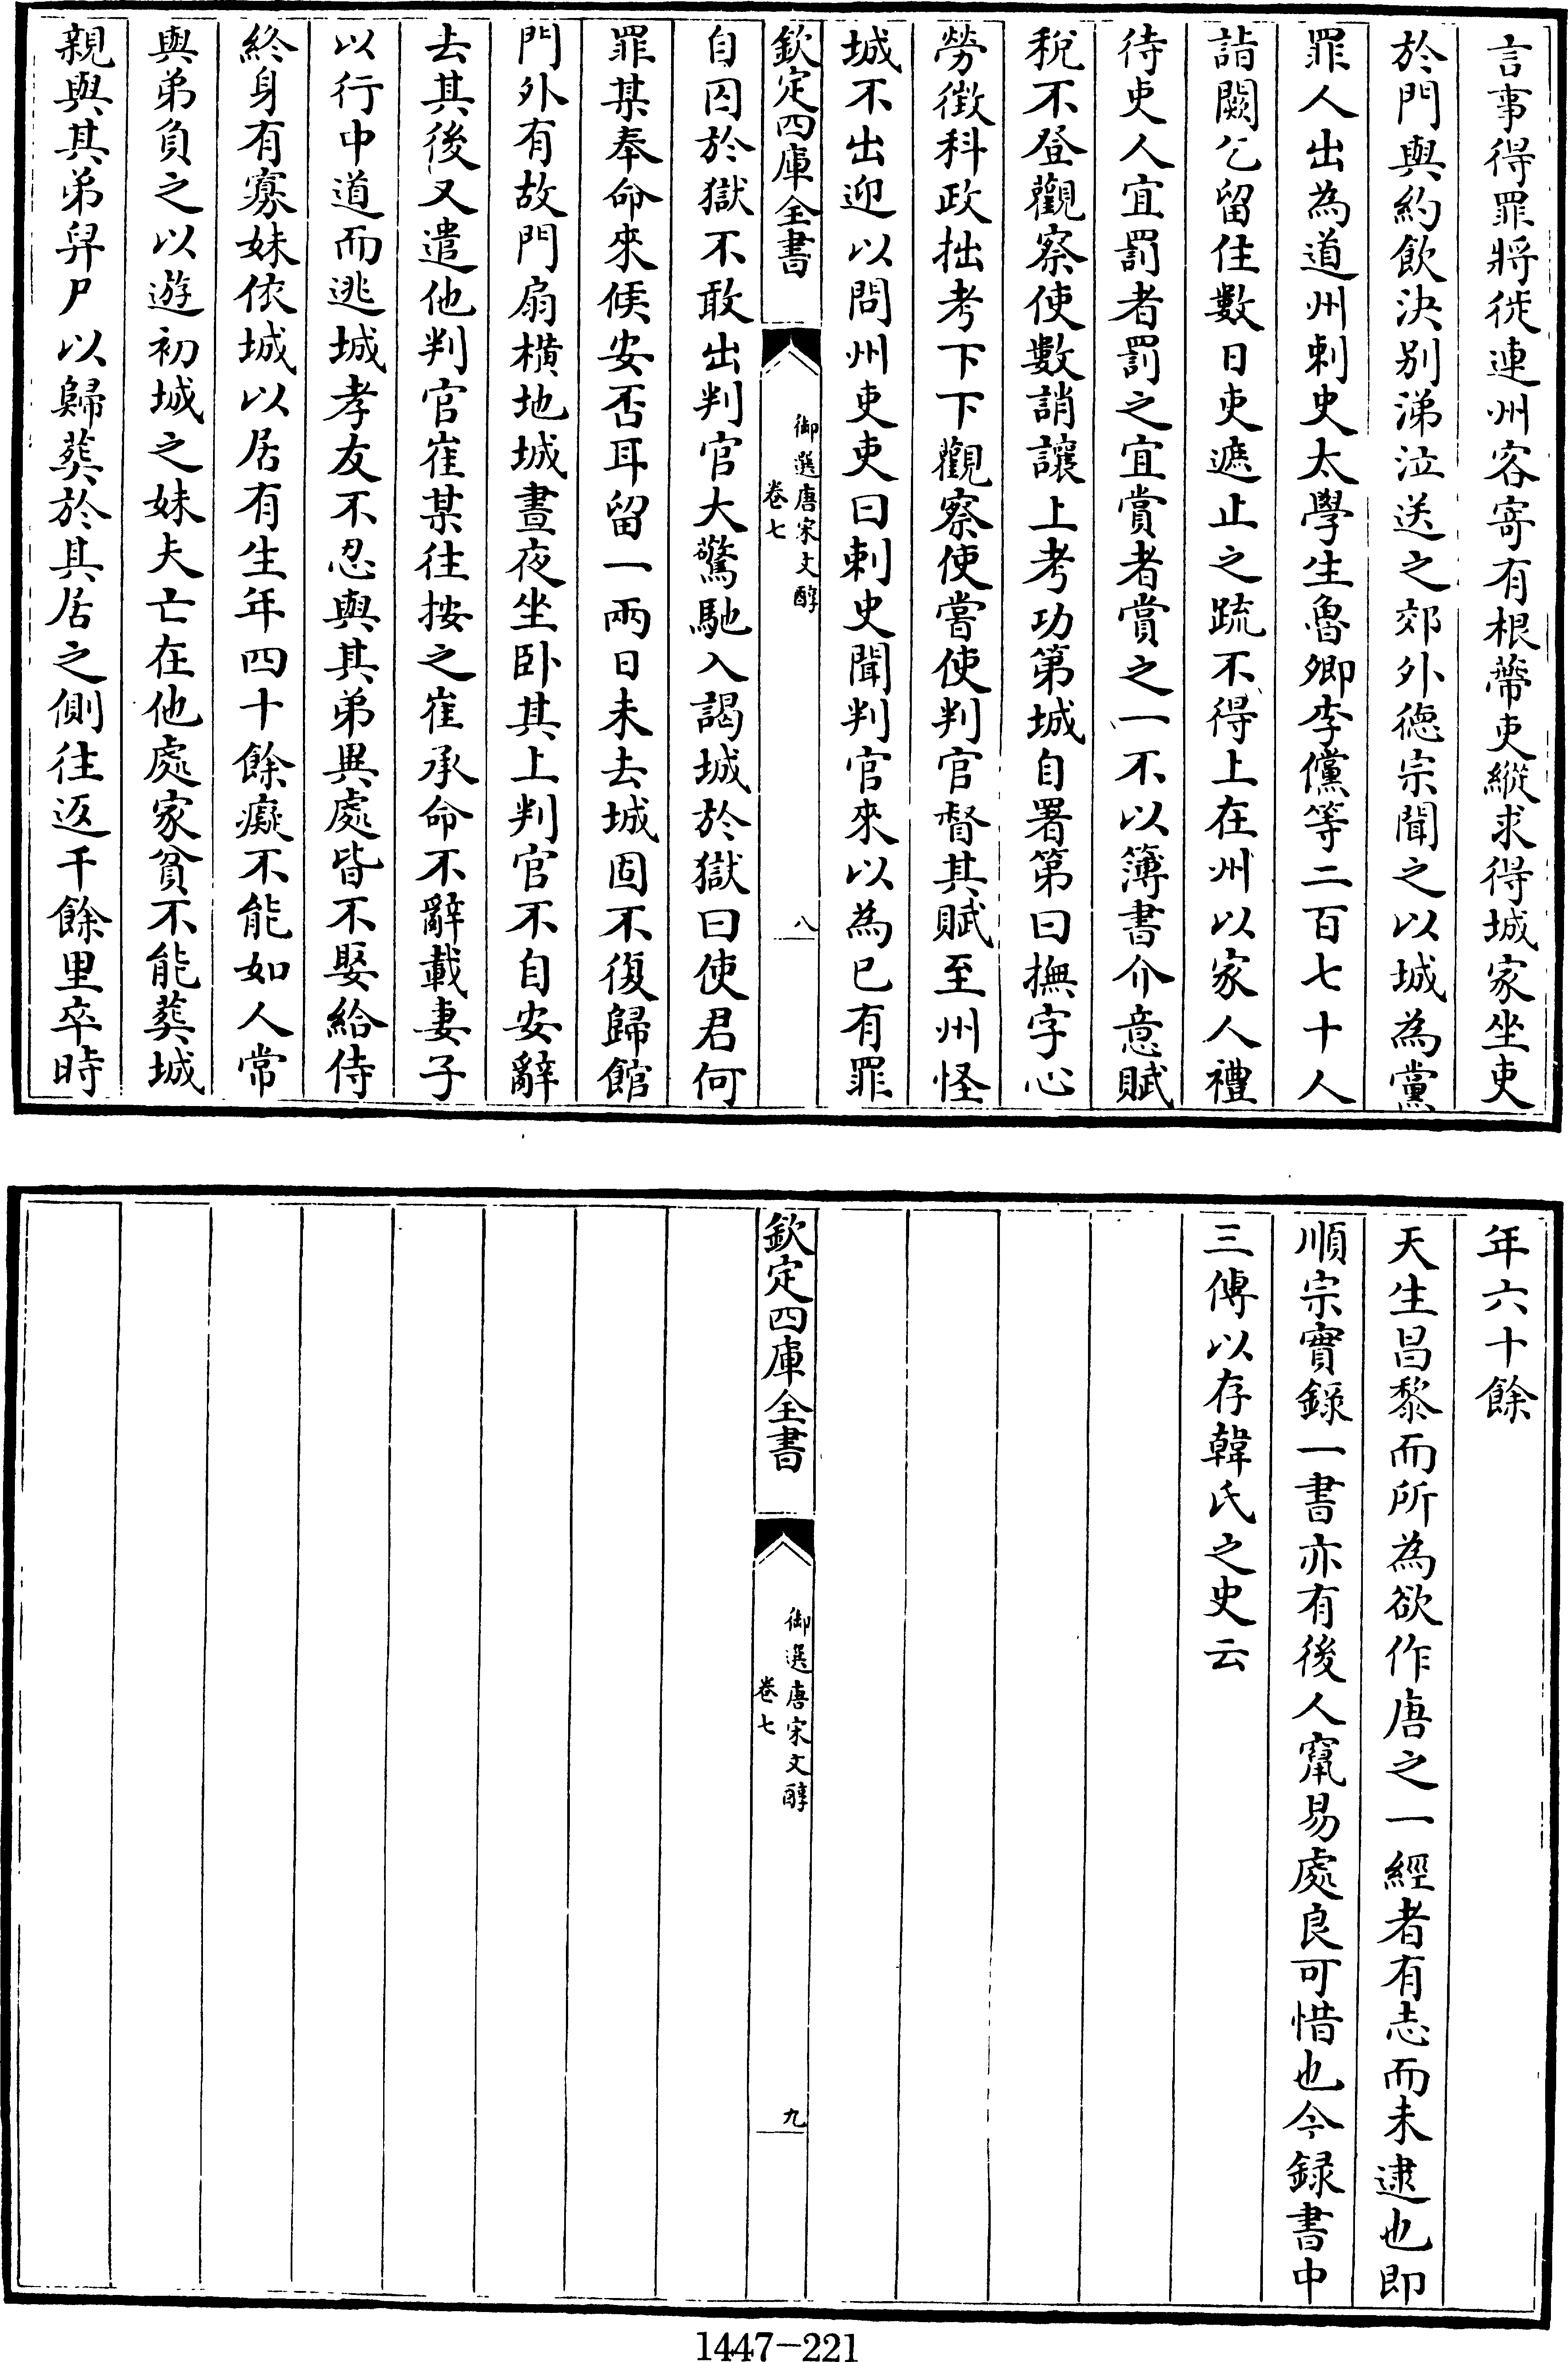 言事得罪將徙連州客寄有根蔕吏縱求得城家坐吏
於門與約飲決别涕泣送之郊外德宗聞之以城為黨
罪人出為道州刺史太學生魯卿李儻等二百七十人
詣闕乞留住數日吏遮止之疏不得上在州以家人禮
待吏人宜罰者罰之宜賞者賞之一不以簿書介意賦
稅不登觀察使數誚讓上考功第城自署第曰撫字心
勞徵科政拙考下下觀察使嘗使判官督其賦至州怪
城不出迎以問州吏吏曰刺史聞判官來以為已有罪
欽定四庫全書
御選唐宋文醇
卷七
八
自囚於獄不敢出判官大驚馳入謁城於獄曰使君何
罪某奉命來候安否耳留一兩日未去城固不復歸館
門外有故門扇橫地城晝夜坐卧其上判官不自安辭
去其後又遣他判官崔某往按之崔承命不辭載妻子
以行中道而逃城孝友不忍與其弟異處皆不娶給侍
終身有寡妹依城以居有生年四十餘癡不能如人常
與弟負之以遊初城之妹夫亡在他處家貧不能葬城
親與其弟舁尸以歸葬於其居之側往返千餘里卒時
年六十餘
天生昌黎而所為欲作唐之一經者有志而未逮也即
順宗實錄一書亦有後人竄易處良可惜也今録書中
三傳以存韓氏之史云
欽定四庫全書
御選唐宋文醇
卷七
九
1447-221